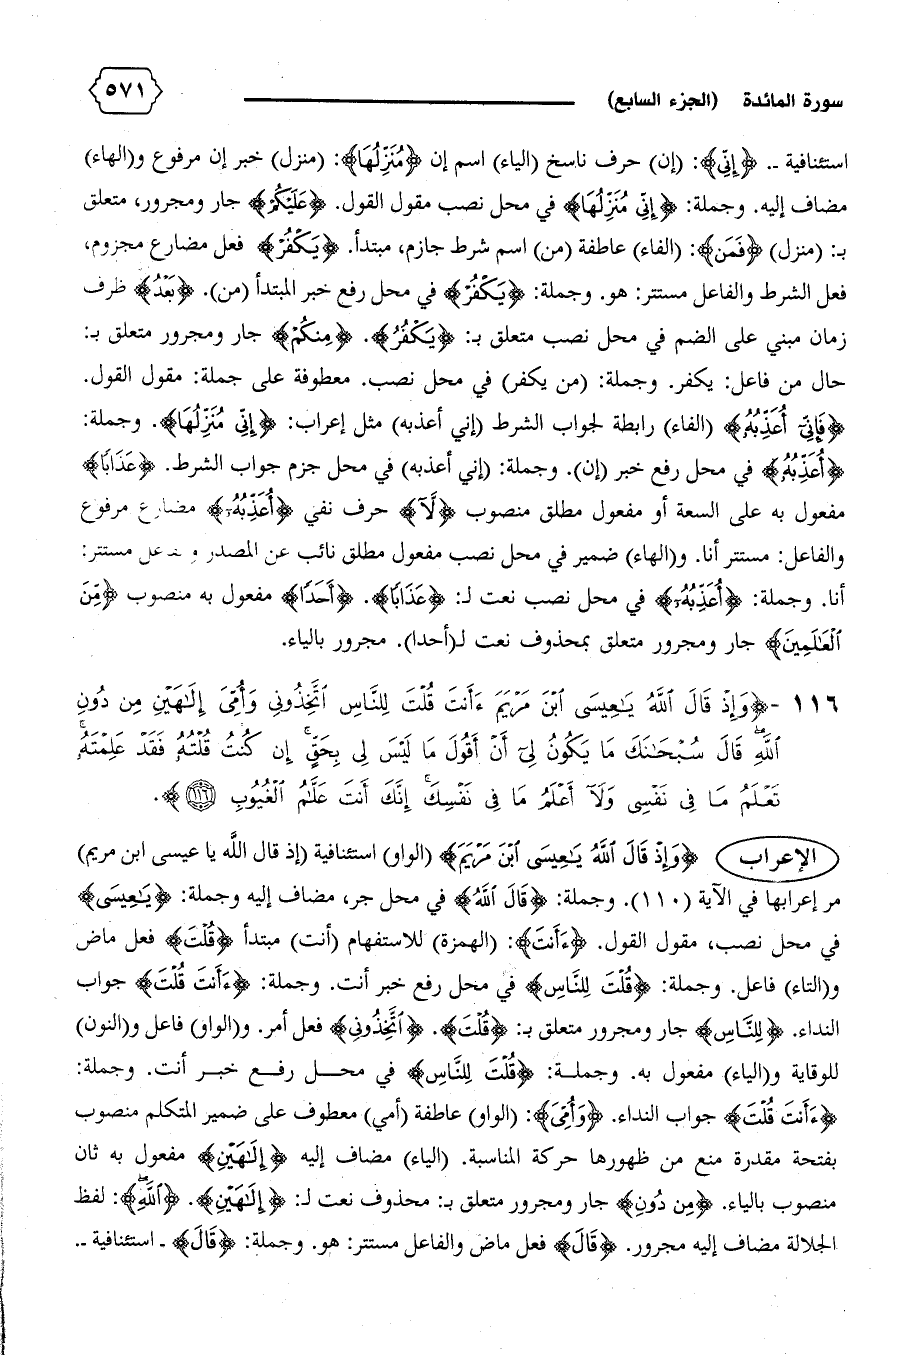 سورة المائدة (الجزء السابع)
٥٧١
استئنافية ـ. ﴿إِنِّي﴾: (إن) حرف ناسخ (الياء) اسم إن ﴿مُنَزِّلُهَا﴾: (منزل) خبر إن مرفوع و(الهاء)
مضاف إليه. وجملة: ﴿إِنِّي مُنَزِّلُهَا﴾ في محل نصب مقول القول. ﴿عَلَيْكُمْ﴾ جار ومجرور، متعلق
بـ: (منزل) ﴿فَمَن﴾: (الفاء) عاطفة (من) اسم شرط جازم، مبتدأ. ﴿يَكْفُرْ﴾ فعل مضارع مجزوم،
فعل الشرط والفاعل مستتر: هو. وجملة: ﴿يَكْفُرْ﴾ في محل رفع خبر المبتدأ (من). ﴿بَعْدُ﴾ ظرف
زمان مبني على الضم في محل نصب متعلق بـ: ﴿يَكْفُرْ﴾. ﴿مِنكُمْ﴾ جار ومجرور متعلق بـ:
حال من فاعل: يكفر. وجملة: (من يكفر) في محل نصب. معطوفة على جملة: مقول القول.
﴿فَإِنِّي أُعَذِّبُهُ﴾ (الفاء) رابطة لجواب الشرط (إني أعذبه) مثل إعراب: ﴿إِنِّي مُنَزِّلُهَا﴾. وجملة:
﴿أُعَذِّبُهُ﴾ في محل رفع خبر (إن). وجملة: (إني أعذبه) في محل جزم جواب الشرط. ﴿عَذَابًا﴾
مفعول به على السعة أو مفعول مطلق منصوب ﴿لَّا﴾ حرف نفي ﴿أُعَذِّبُهُ﴾ مضارع مرفوع
والفاعل: مستتر أنا. و(الهاء) ضمير في محل نصب مفعول مطلق نائب عن المصدر والفاعل مستتر:
أنا. وجملة: ﴿أُعَذِّبُهُ﴾ في محل نصب نعت لـ: ﴿عَذَابًا﴾. ﴿أَحَدًا﴾ مفعول به منصوب ﴿مِّنَ
الْعَالَمِينَ﴾ جار ومجرور متعلق بمحذوف نعت لـ(أحدا). مجرور بالياء.
١١٦ - ﴿وَإِذْ قَالَ ٱللَّهُ يَٰعِيسَى ٱبْنَ مَرْيَمَ ءَأَنتَ قُلْتَ لِلنَّاسِ ٱتَّخِذُونِي وَأُمِّيَ إِلَٰهَيْنِ مِن دُونِ
ٱللَّهِۖ قَالَ سُبْحَٰنَكَ مَا يَكُونُ لِيٓ أَنْ أَقُولَ مَا لَيْسَ لِي بِحَقٍّۚ إِن كُنتُ قُلْتُهُۥ فَقَدْ عَلِمْتَهُۥۚ
تَعْلَمُ مَا فِي نَفْسِي وَلَآ أَعْلَمُ مَا فِي نَفْسِكَۚ إِنَّكَ أَنتَ عَلَّٰمُ ٱلْغُيُوبِ ١١٦﴾.
الإعراب ﴿وَإِذْ قَالَ ٱللَّهُ يَٰعِيسَى ٱبْنَ مَرْيَمَ﴾ (الواو) استئنافية (إذ قال اللَّه يا عيسى ابن مريم)
مر إعرابها في الآية (١١٠). وجملة: ﴿قَالَ ٱللَّهُ﴾ في محل جر، مضاف إليه وجملة: ﴿يَٰعِيسَى﴾
في محل نصب، مقول القول. ﴿ءَأَنتَ﴾: (الهمزة) للاستفهام (أنت) مبتدأ ﴿قُلْتَ﴾ فعل ماض
و(التاء) فاعل. وجملة: ﴿قُلْتَ لِلنَّاسِ﴾ في محل رفع خبر أنت. وجملة: ﴿ءَأَنتَ قُلْتَ﴾ جواب
النداء. ﴿لِلنَّاسِ﴾ جار ومجرور متعلق بـ: ﴿قُلْتَ﴾. ﴿ٱتَّخِذُونِي﴾ فعل أمر. و(الواو) فاعل و(النون)
للوقاية و(الياء) مفعول به. وجملة: ﴿قُلْتَ لِلنَّاسِ﴾ في محل رفع خبر أنت. وجملة:
﴿ءَأَنتَ قُلْتَ﴾ جواب النداء. ﴿وَأُمِّيَ﴾: (الواو) عاطفة (أمي) معطوف على ضمير المتكلم منصوب
بفتحة مقدرة منع من ظهورها حركة المناسبة. (الياء) مضاف إليه ﴿إِلَٰهَيْنِ﴾ مفعول به ثان
منصوب بالياء. ﴿مِن دُونِ﴾ جار ومجرور متعلق بـ: محذوف نعت لـ: ﴿إِلَٰهَيْنِ﴾. ﴿ٱللَّهِۖ﴾: لفظ
الجلالة مضاف إليه مجرور. ﴿قَالَ﴾ فعل ماض والفاعل مستتر: هو. وجملة: ﴿قَالَ﴾ ـ استئنافية ـ.